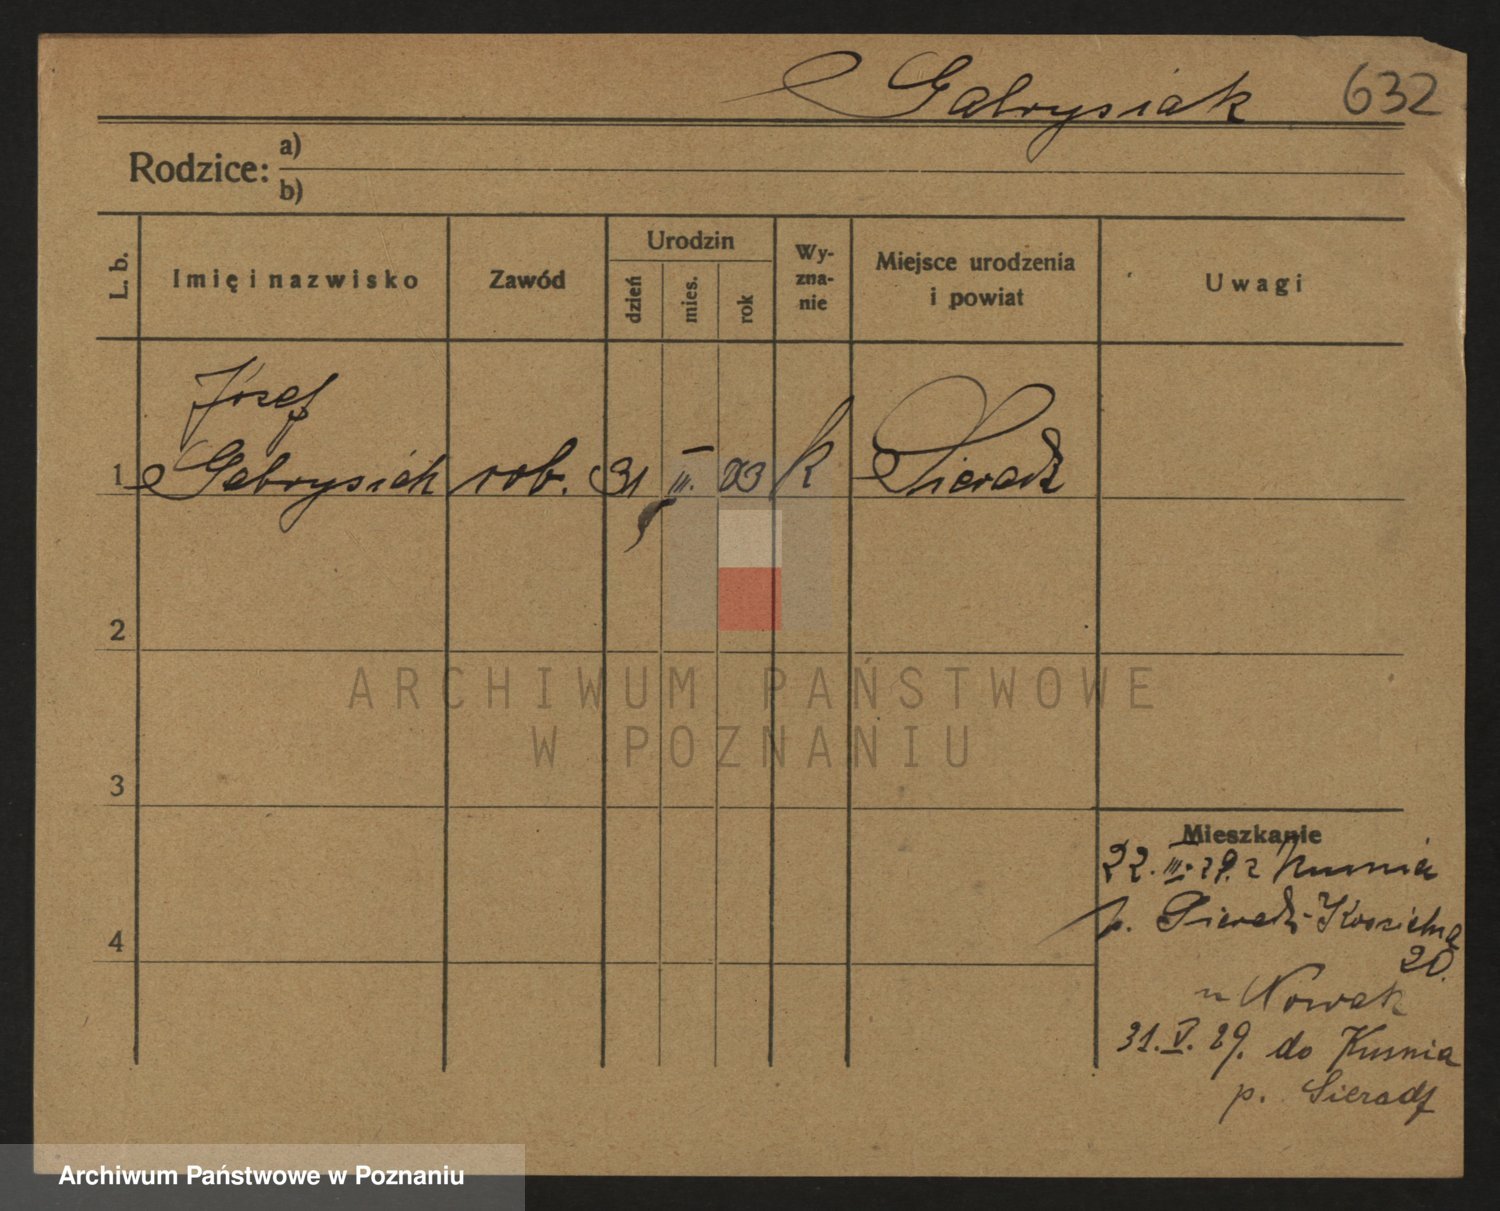 Gabrysiak 632
Rodzice: a)
b)
L. b. Imię i nazwisko Zawód Urodzin dzień mies. rok Wy-zna-nie Miejsce urodzenia i powiat Uwagi
Józef
1 Gabrysiak rob. 31 III. 03 k Sieradz
2
3
4
Mieszkanie
22. III. 29. z Kusnia
p. Sieradz - Kościelna
20.
u Nowak
31. V. 29. do Kusnia
p. Sieradz
ARCHIWUM PAŃSTWOWE
W POZNANIU
Archiwum Państwowe w Poznaniu